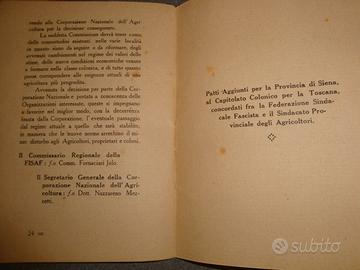 rendo alla Corporazione Nazionale dell' Agri-
coltura per la decisione conseguente.
La suddetta Commissione dovrà tener conto
delle consuetudini esistenti nelle varie località
in questo caso si seguito a da riformare, degli
avvenuti cambiamenti del regime attuale delle
aziende, delle nuove condizioni economiche venute
a formarsi nella classe colonica, e di tutto quanto
possa corrispondere alle esigenze attuali di una
agricoltura più progredita.
Avvenuta la decisione per parte della Corpo-
razione Nazionale e portata a conoscenza delle
Organizzazioni interessate, queste si impegnano
a favorire nel miglior modo, con la decorrenza
fissata dalla Corporazione, l' eventuale passaggio
dal regime attuale a quello che sarà stabilito, in
maniera che le nuove norme arrechino il minor
disturbo agli Agricoltori, proprietari e coloni.
Il Commissario Regionale della
FISAF: f.o Comm. Fornaciari Jolo.
Il Segretario Generale della Cor-
porazione Nazionale dell' Agri-
coltura: f.o Dott. Nazzareno Mez-
zetti.
24
Patti Aggiunti per la Provincia di Siena,
al Capitolato Colonico per la Toscana,
concordati fra la Federazione Sinda-
cale Fascista e il Sindacato Pro-
vinciale degli Agricoltori.
subito